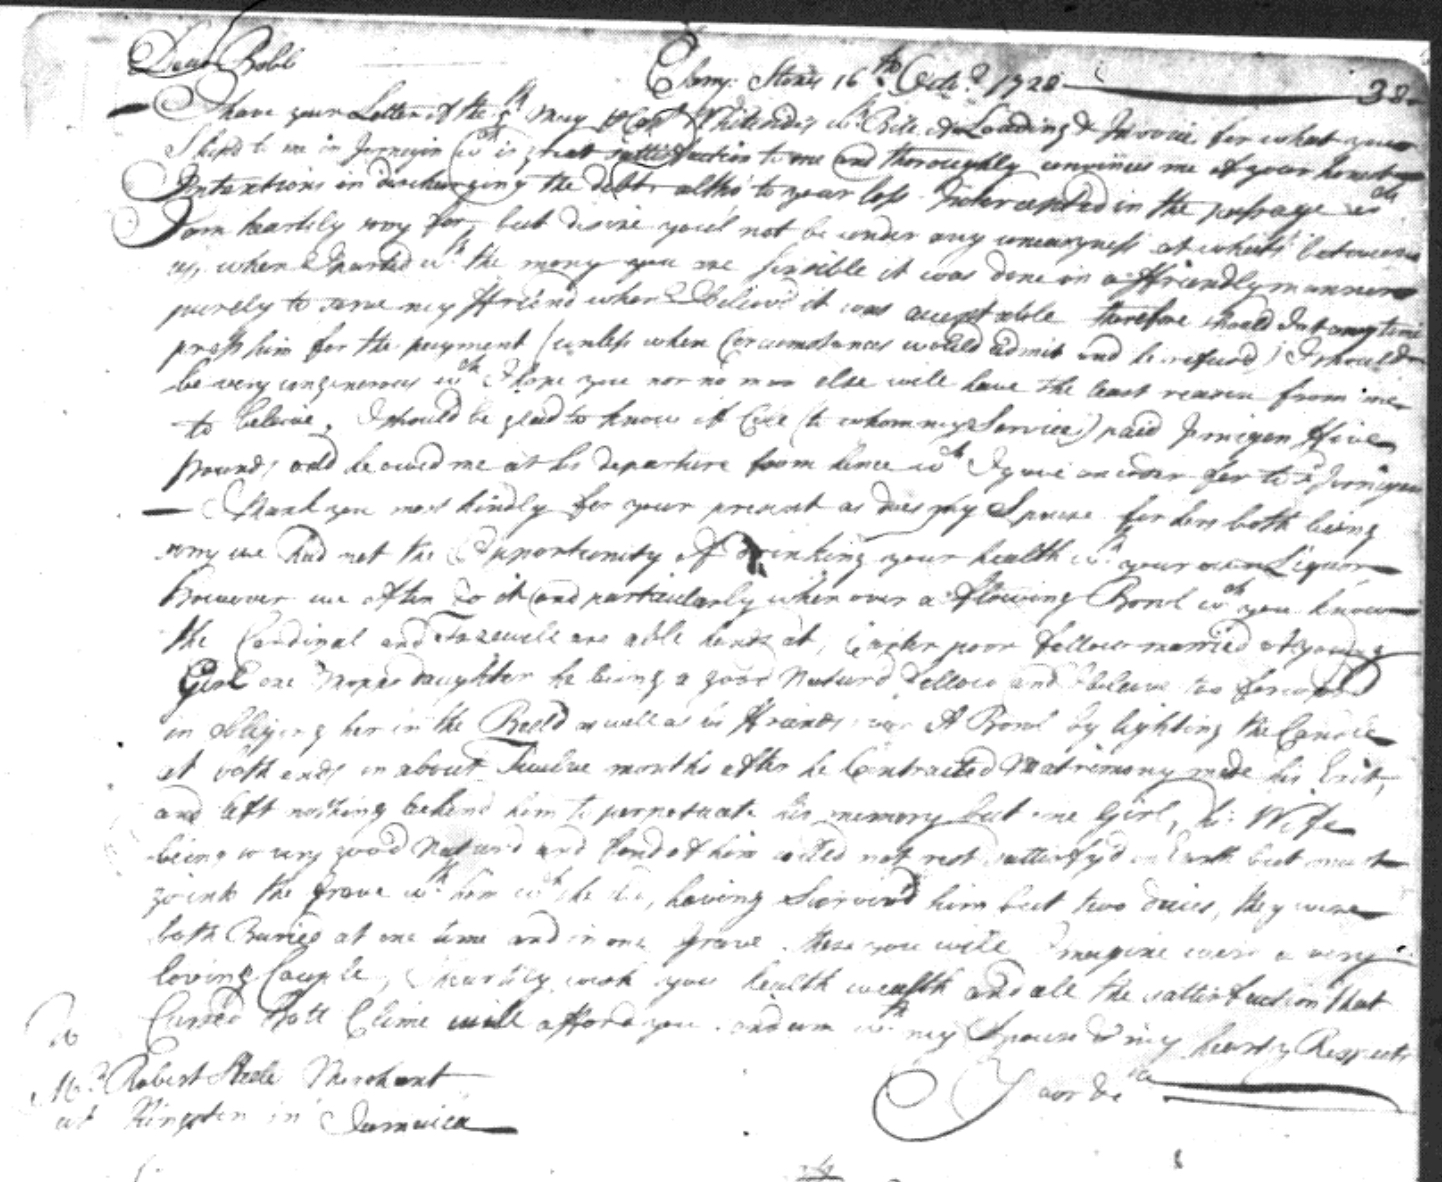 Dear Robt
Chang: Stores 16th Octr. 1728 38
I have your Letter of the 8th May Capt Whitend wth Bill of Loading & Invoice for what your
Ship'd to me in Jernegin wch is great sattisfaction to me and thoroughly convinces me of your honest
Intentions in discharging the debt altho' to your loss Intercepted in the passage wch
I am heartily sorry for, but desire you'l not be under any uneasyness at what's between
us, when I parted wth the mony you are sensible it was done in a ffriendly manner
purely to serve my ffriend when I believ'd it was acceptable therefore should I at any time
press him for the payment (unless when Circumstances would admit and he refused) I should
be very ungenerous wch I hope you nor no man else will have the least reason from me
to believe, I should be glad to know if Cole (to whom my Service) paid Jernigen ffive
pounds odd he owed me at his departure from hence wch I gave an order for to Jernigen
I thank you most kindly for your present as does my Spouse for hers both being
sorry we had not the Oppertunity of drinking your health in your own Liquor
however we often do it and particularly when over a fflowing Bowl wch you know
the Cardinal and Fazewell are able hands at, Carter poor ffellow married a young
Girl one Mopes daughter he being a good Natur'd ffellow and I believe too forward
in obliging her in the Bedd as well as his ffriends over A Bowl by lighting the Candle
at both ends in about Twelve months after he Contracted Matrimony made his Exit,
and left nothing behind him to perpetuate his memory but one Girl, his Wife
being so very good Natur'd and fond of him could not rest sattisfy'd on Earth but must
go into the grave wth him wch she did, having Surviv'd him but two daies, they were
both Buried at one time and in one Grave. these you will Imagine were a very
loving Couple, I heartily wish you health wealth and all the sattisfaction that
Cursed Hott Clime will afford you. and am wth my Spouse & my hearty Respects
Your &c
To
Mr. Robert Steele Merchant
at Kingston in Jamaica